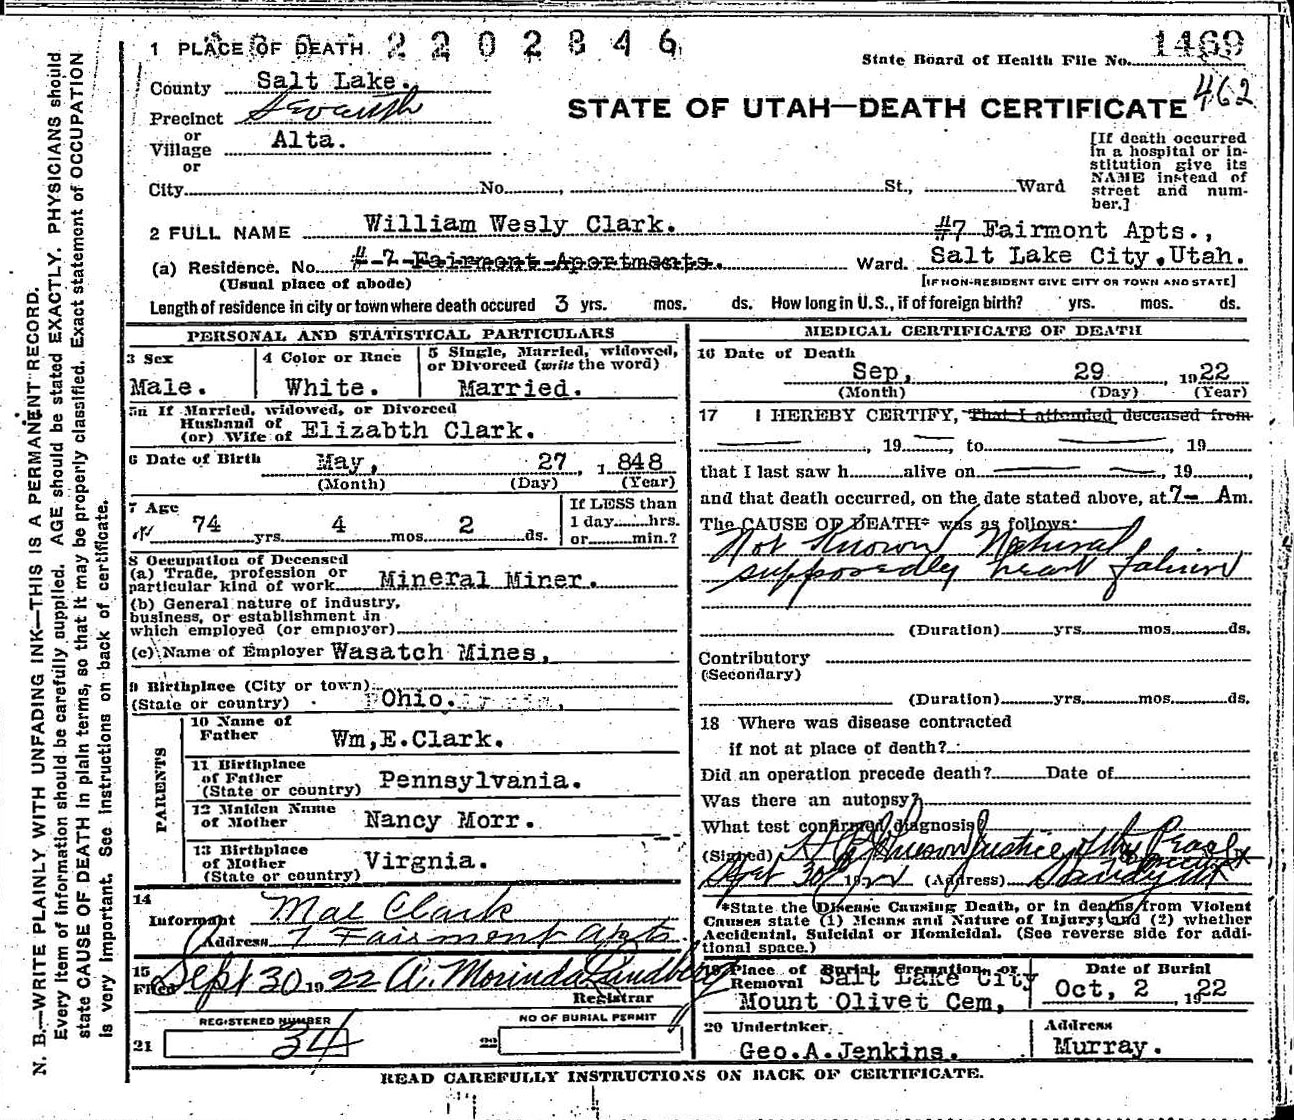 1 PLACE OF DEATH 2202846
1469
State Board of Health File No.
462
County Salt Lake.
STATE OF UTAH—DEATH CERTIFICATE
Precinct
or
Village Alta.
or
City No. , St., Ward
[If death occurred
in a hospital or in-
stitution give its
NAME instead of
street and num-
ber.]
2 FULL NAME William Wesly Clark. #7 Fairmont Apts.,
(a) Residence. No. #-7-Fairmont-Aportments. Ward. Salt Lake City,Utah.
(Usual place of abode) [IF NON-RESIDENT GIVE CITY OR TOWN AND STATE]
Length of residence in city or town where death occured 3 yrs. mos. ds. How long in U.S., if of foreign birth? yrs. mos. ds.
PERSONAL AND STATISTICAL PARTICULARS
3 Sex
Male.
4 Color or Race
White.
5 Single, Married, widowed,
or Divorced (write the word)
Married.
5a If Married, widowed, or Divorced
Husband of
(or) Wife of Elizabth Clark.
6 Date of Birth May, 27 , 1848
(Month) (Day) (Year)
7 Age
74 yrs. 4 mos. 2 ds.
If LESS than
1 day hrs.
or min.?
8 Occupation of Deceased
(a) Trade, profession or
particular kind of work Mineral Miner.
(b) General nature of industry,
business, or establishment in
which employed (or employer)
(c) Name of Employer Wasatch Mines,
9 Birthplace (City or town)
(State or country) Ohio.
PARENTS
10 Name of
Father Wm,E.Clark.
11 Birthplace
of Father
(State or country) Pennsylvania.
12 Maiden Name
of Mother Nancy Morr.
13 Birthplace
of Mother
(State or country) Virgnia.
14
Informant Mae Clark
Address 7 Fairmont Apts.
15
Filed Sept 30 1922 A. Morinda Lundberg
Registrar
REGISTERED NUMBER
21 34
NO OF BURIAL PERMIT
22
MEDICAL CERTIFICATE OF DEATH
16 Date of Death
Sep, 29 , 1922
(Month) (Day) (Year)
17 I HEREBY CERTIFY, That I attended deceased from
, 19 to , 19
that I last saw h alive on , 19
and that death occurred, on the date stated above, at 7- Am.
The CAUSE OF DEATH* was as follows:
Not Known Natural
supposedly heart failure
(Duration) yrs. mos. ds.
Contributory
(Secondary)
(Duration) yrs. mos. ds.
18 Where was disease contracted
if not at place of death?
Did an operation precede death? Date of
Was there an autopsy?
What test confirmed diagnosis?
(Signed) Justice of the Peace
Sept 30 1922 (Address) Sandy Ut
*State the Disease Causing Death, or in deaths from Violent
Causes state (1) Means and Nature of Injury; and (2) whether
Accidental, Suicidal or Homicidal. (See reverse side for addi-
tional space.)
19 Place of Burial, Cremation, or
Removal Salt Lake City
Mount Olivet Cem,
Date of Burial
Oct, 2 , 1922
20 Undertaker
Geo.A.Jenkins.
Address
Murray.
READ CAREFULLY INSTRUCTIONS ON BACK OF CERTIFICATE.
N. B.—WRITE PLAINLY WITH UNFADING INK—THIS IS A PERMANENT RECORD.
Every item of information should be carefully supplied. AGE should be stated EXACTLY. PHYSICIANS should
state CAUSE OF DEATH in plain terms, so that it may be properly classified. Exact statement of OCCUPATION
is very important. See instructions on back of certificate.